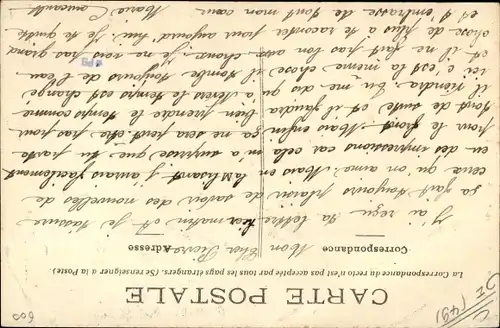 CARTE POSTALE
La Correspondance du recto n'est pas acceptée par tous les pays étrangers. (Se renseigner à la Poste)
Correspondance
Adresse
Mon Cher Pierre
J'ai reçu ta lettre hier matin et je t'assure
ça fait toujours plaisir de savoir des nouvelles de
ceux qu'on aime. Mais en la lisant j'avais facilement
eu des impressions car cela m'a surprise que tu parte
pour le front. Mais enfin ça ne sera peut être pas pour
tout de suite et il faudra bien prendre le temps comme
il viendra. Tu me dis qu'à le temps est changé
ici c'est la même chose il tombe toujours de l'eau
et il ne fait pas bon aux champs. Je ne vois pas grand
chose de plus à te raconter pour aujourd'hui. Je te quitte
et t'embrasse de tout mon cœur.
Marie
600